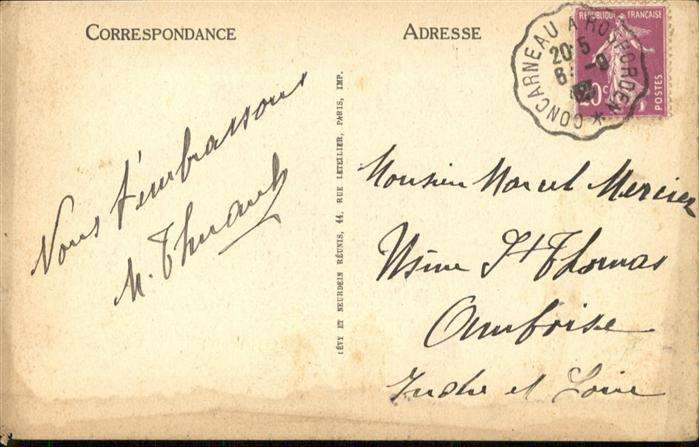 CORRESPONDANCE
Nous t'embrassons
M. Thuault
LÉVY ET NEURDEIN RÉUNIS, 44, RUE LETELLIER, PARIS, IMP.
ADRESSE
RÉPUBLIQUE FRANÇAISE
20c
POSTES
CONCARNEAU A ROSPORDEN *
20·5
Monsieur Marcel Mercier
Usine St Thomas
Amboise
Indre et Loire